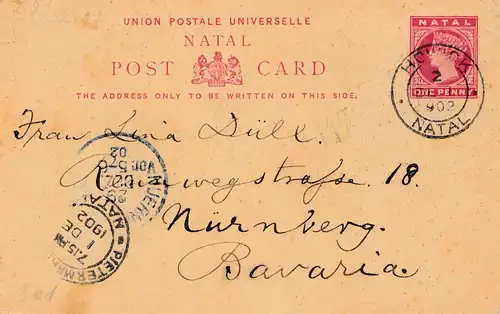 UNION POSTALE UNIVERSELLE
NATAL
POST CARD
THE ADDRESS ONLY TO BE WRITTEN ON THIS SIDE.
NATAL
ONE PENNY
HOWICK
2
902
NATAL
Frau Lina Düll.
18.
Nürnberg.
Bavaria.
VOR. 5-6
02
29
7.15 PM
1 DE
1902
NATAL